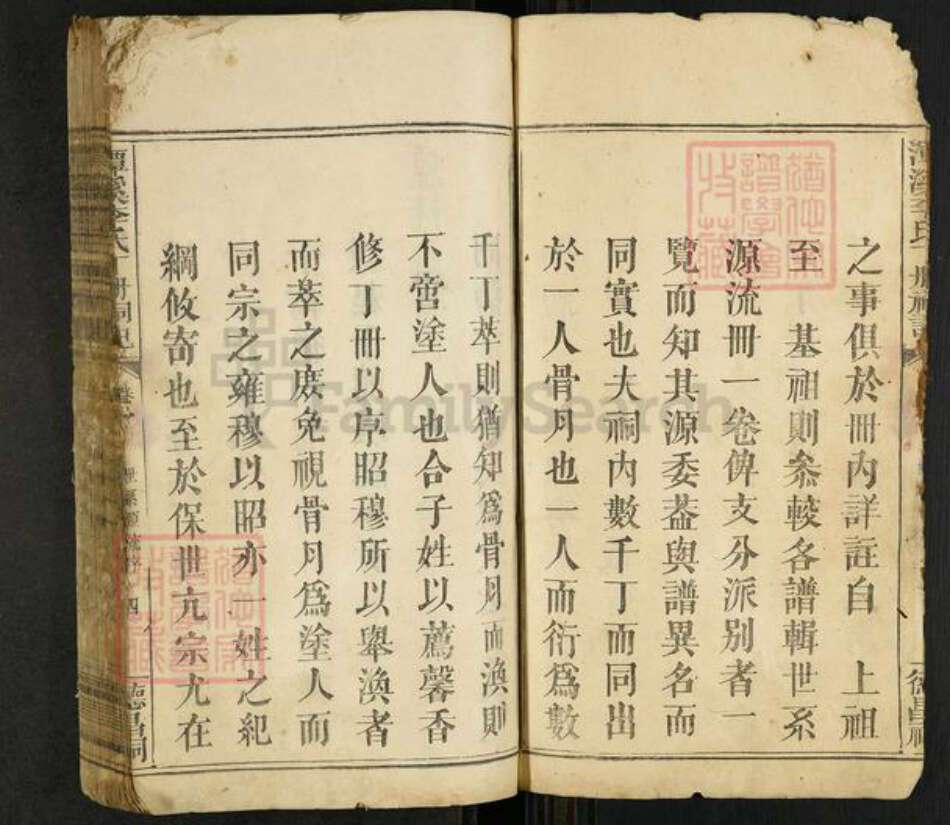 之事俱於冊內詳註自　上祖
至　基祖則叅較各譜輯世系
源流冊一卷俾支分派別者一
覽而知其源委葢與譜異名而
同實也夫祠內數千丁而同出
於一人骨月也一人而衍為數
千丁萃則猶知為骨月而渙則
不啻塗人也合子姓以薦馨香
修丁冊以序昭穆所以舉渙者
而萃之庶免視骨月為塗人而
同宗之雍穆以昭亦一姓之紀
綱攸寄也至於保世亢宗尤在
四
FamilySearch